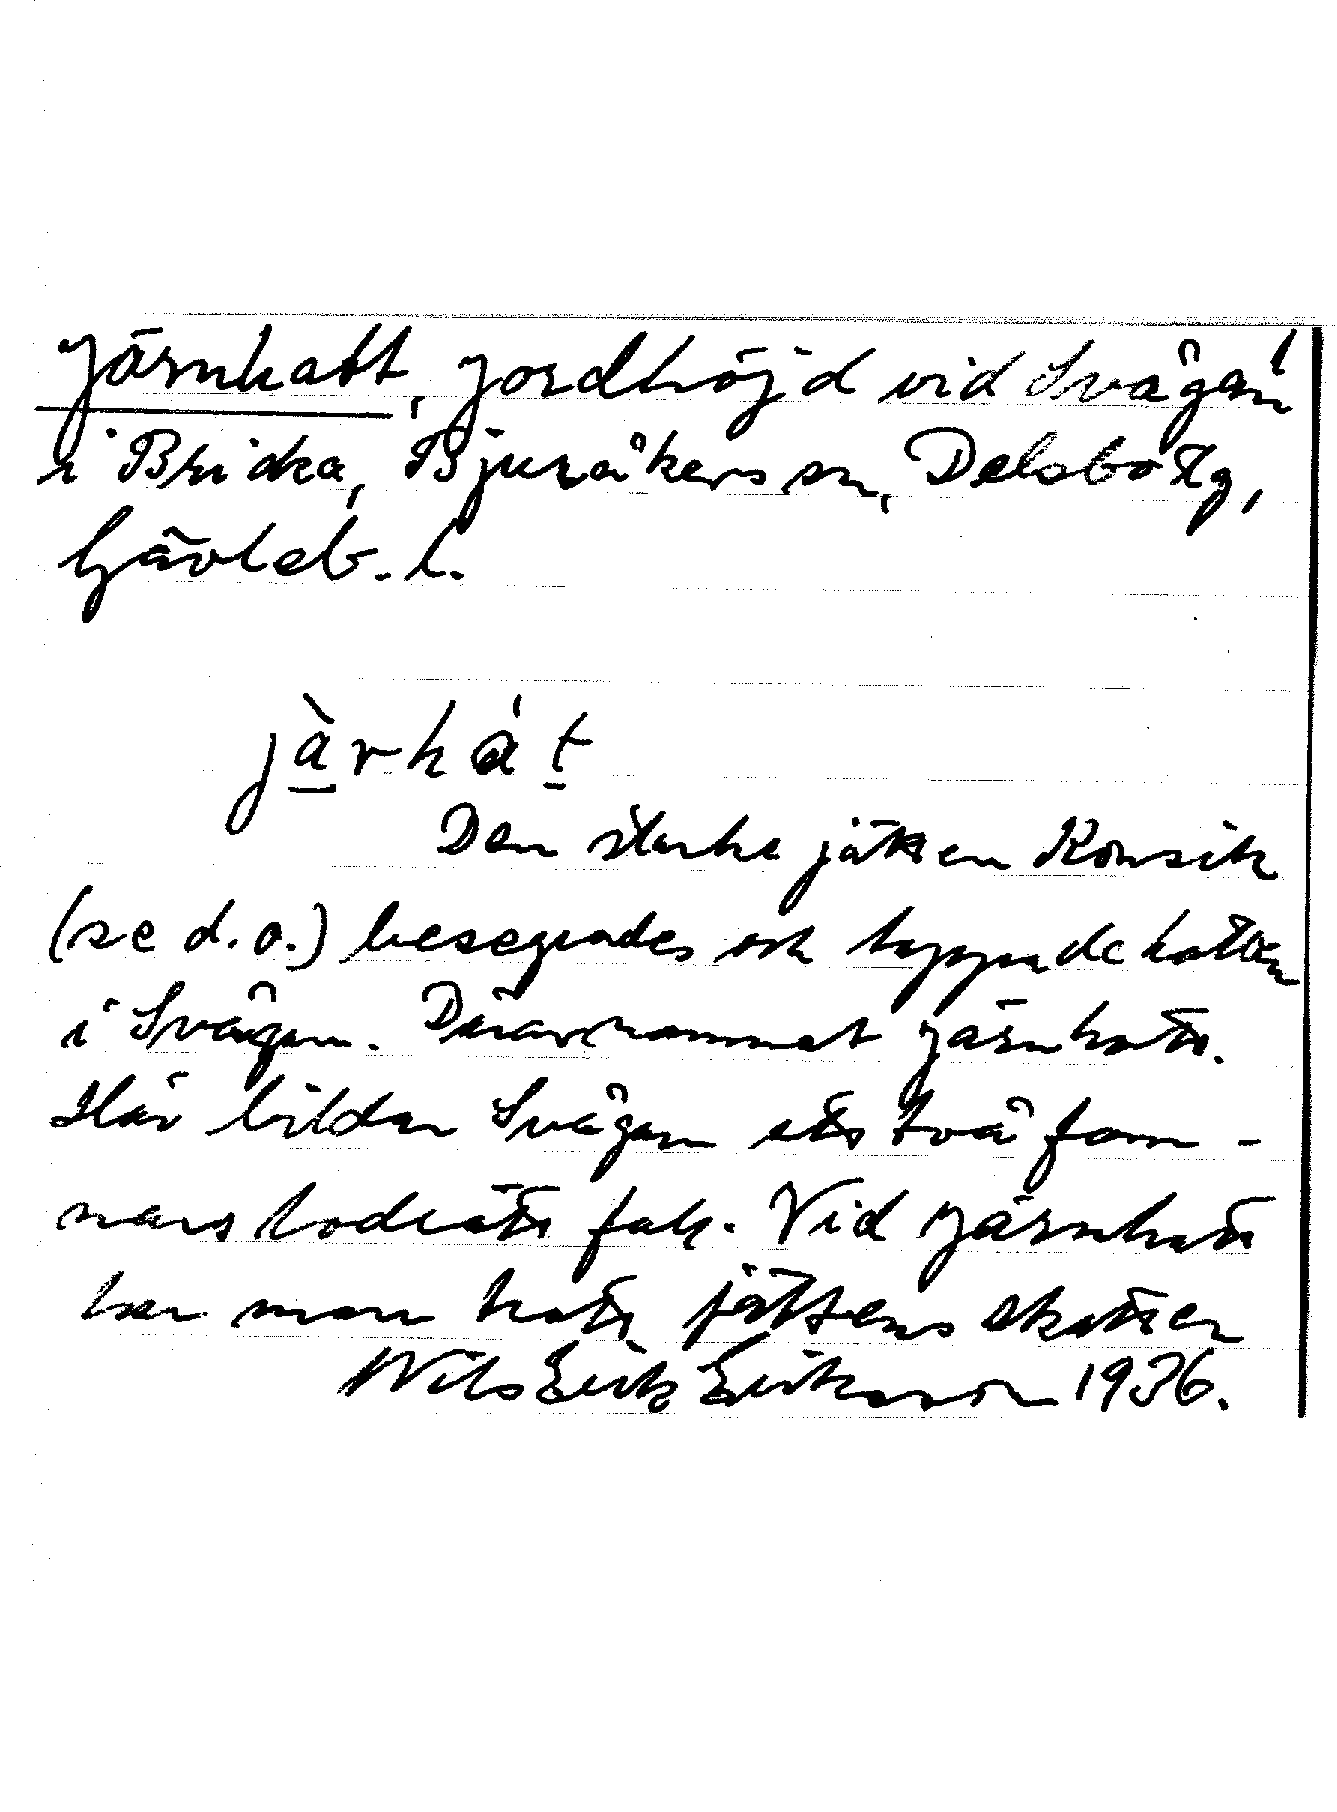 Järnhatt, jordhöjd vid Svågan
i Bricka, Bjuråkers sn, Delsbo tg,
Gävleb. l.
jàrhát
Den starke jätten Konsik
(se d.o.) besegrades och tappade hatten
i Svågan. Därav namnet Järnhatt.
Här bildar Svågan ett två fam-
nars lodrätt fall. Vid Järnhatt
har man hatt jättens skatter
Nils Erik Eriksson 1936.